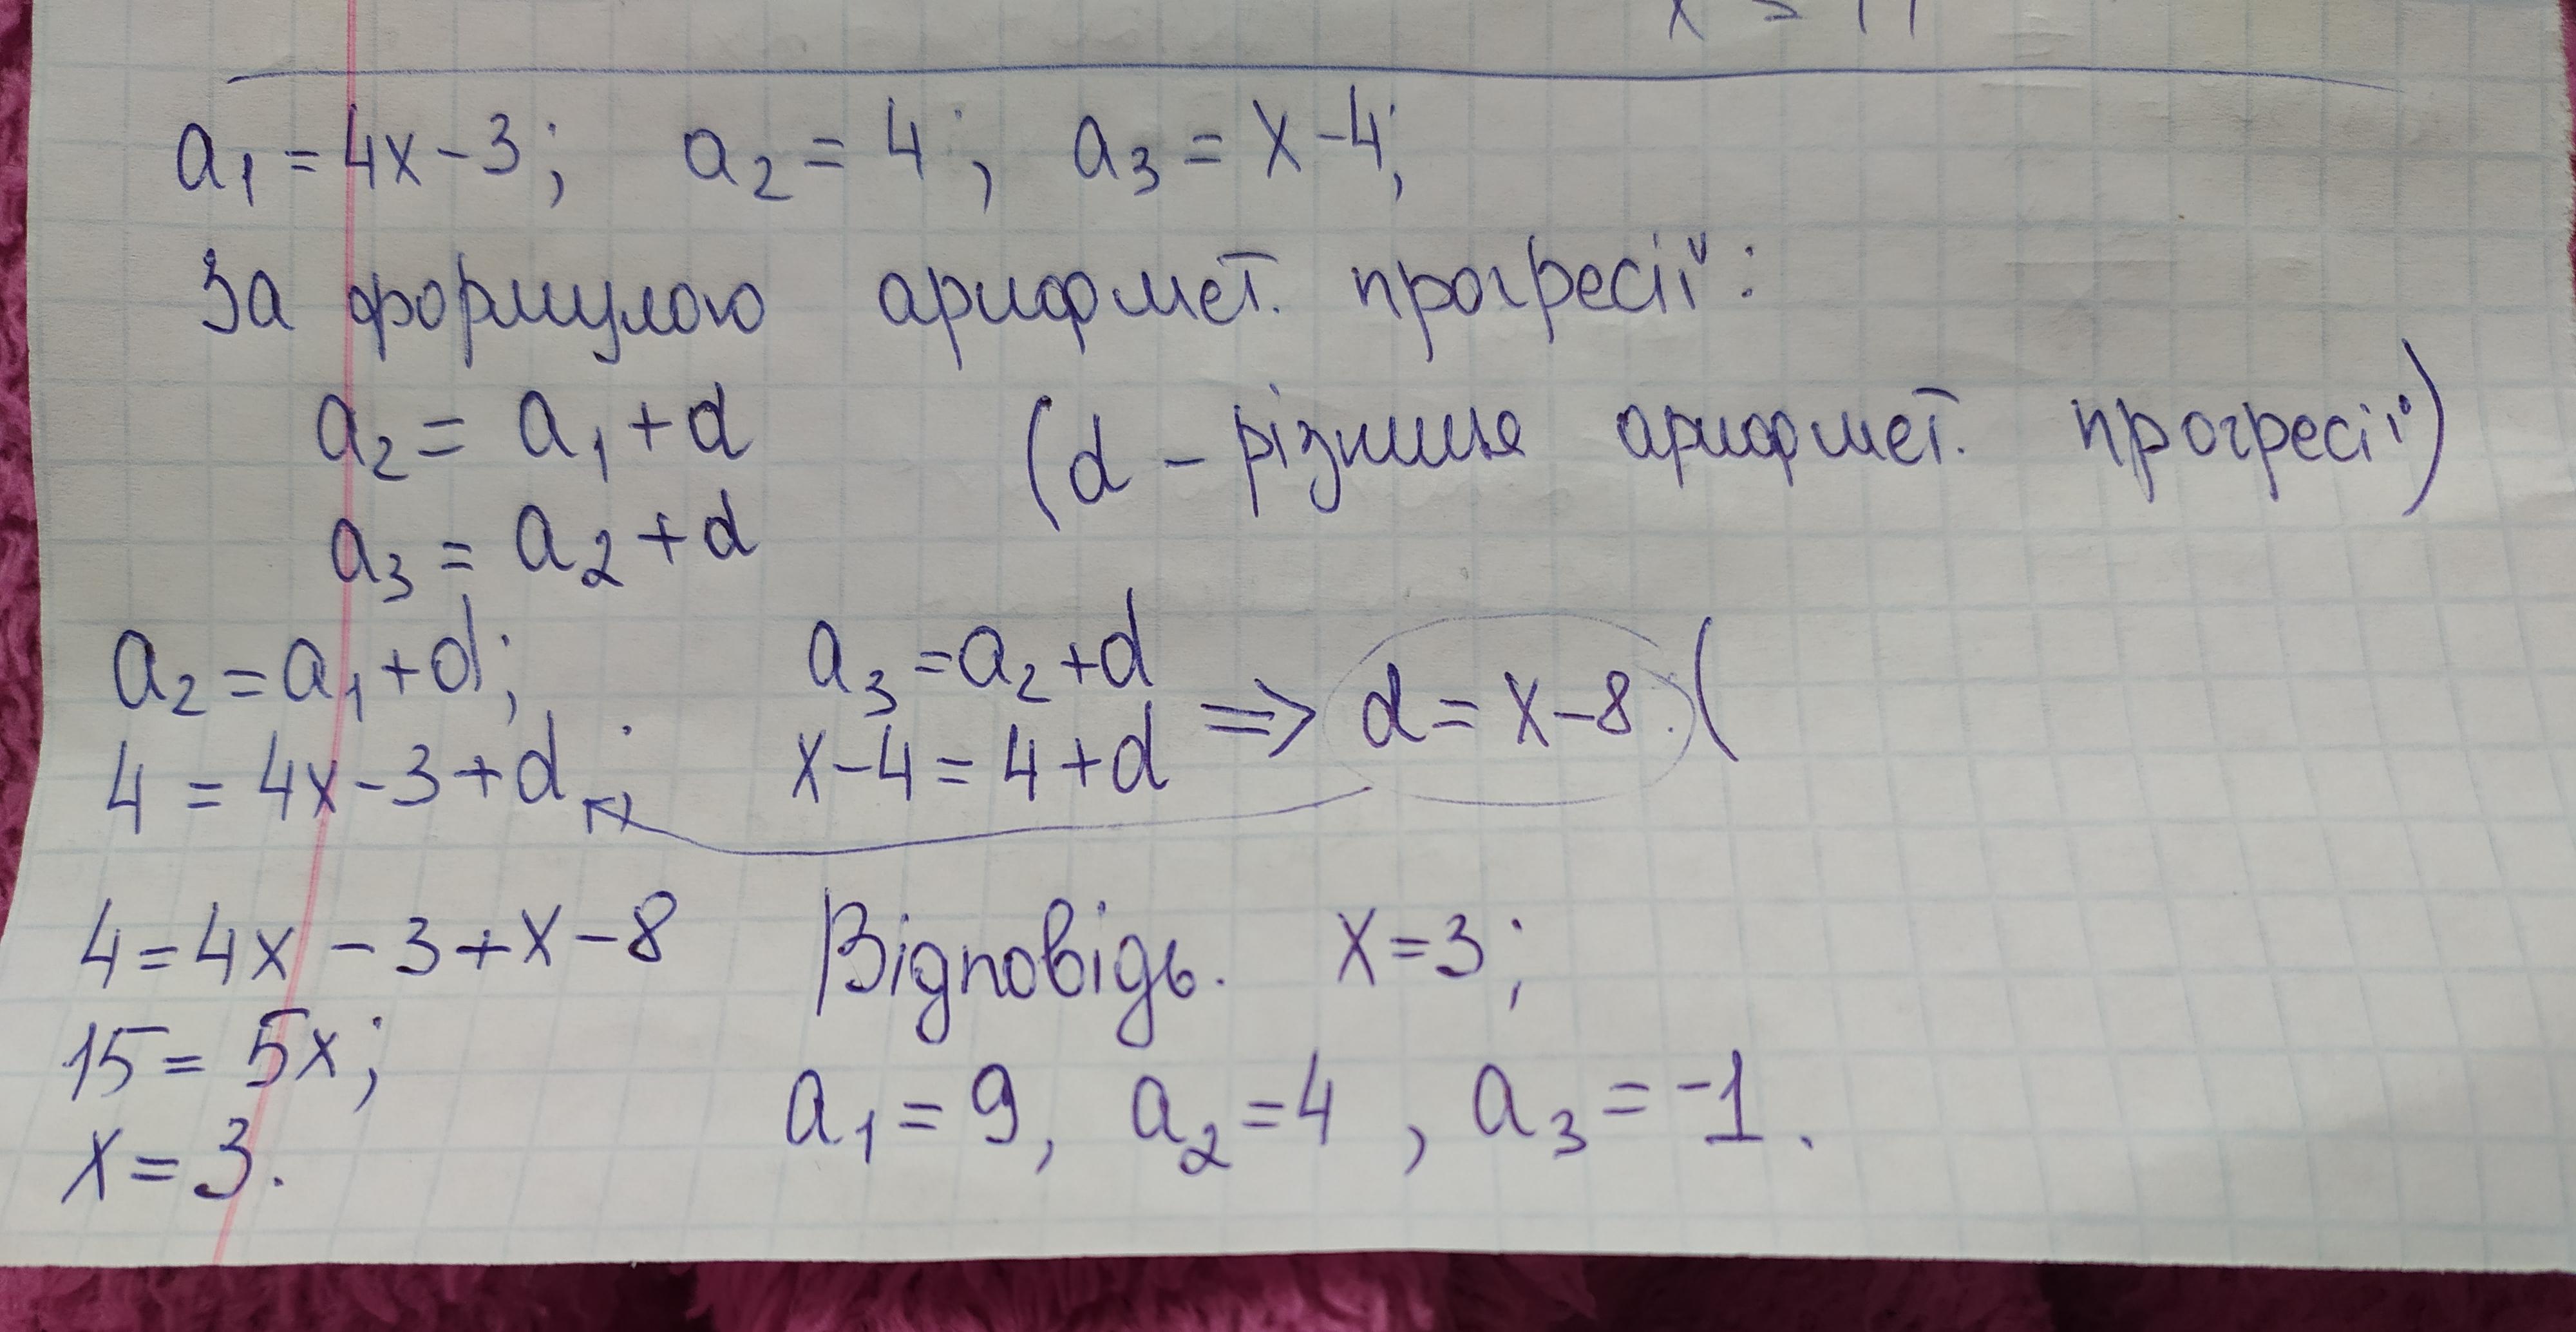 a₁ = 4x - 3; a₂ = 4; a₃ = x - 4;
За формулою арифмет. прогресії:
a₂ = a₁ + d (d - різниця арифмет. прогресії)
a₃ = a₂ + d
a₂ = a₁ + d; a₃ = a₂ + d
4 = 4x - 3 + d; x - 4 = 4 + d ⇒ d = x - 8. (
4 = 4x - 3 + x - 8 Відповідь. x = 3;
15 = 5x; a₁ = 9, a₂ = 4, a₃ = -1.
x = 3.